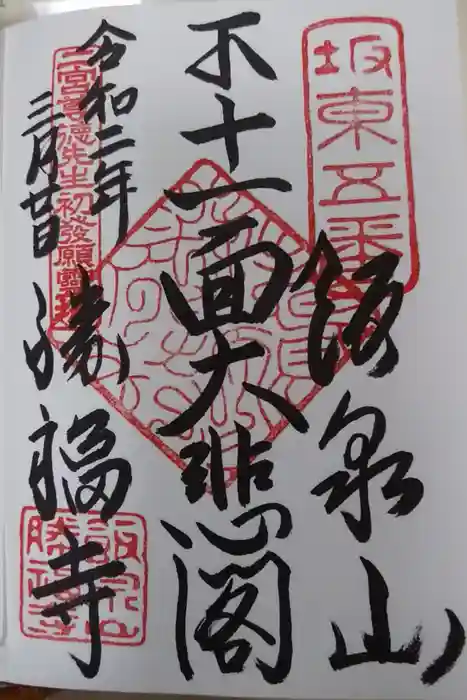 坂東五番
飯泉山
十一面大悲閣
令和二年
三月廿日
二宮尊徳先生初発願霊場
勝福寺
飯泉山
勝福寺